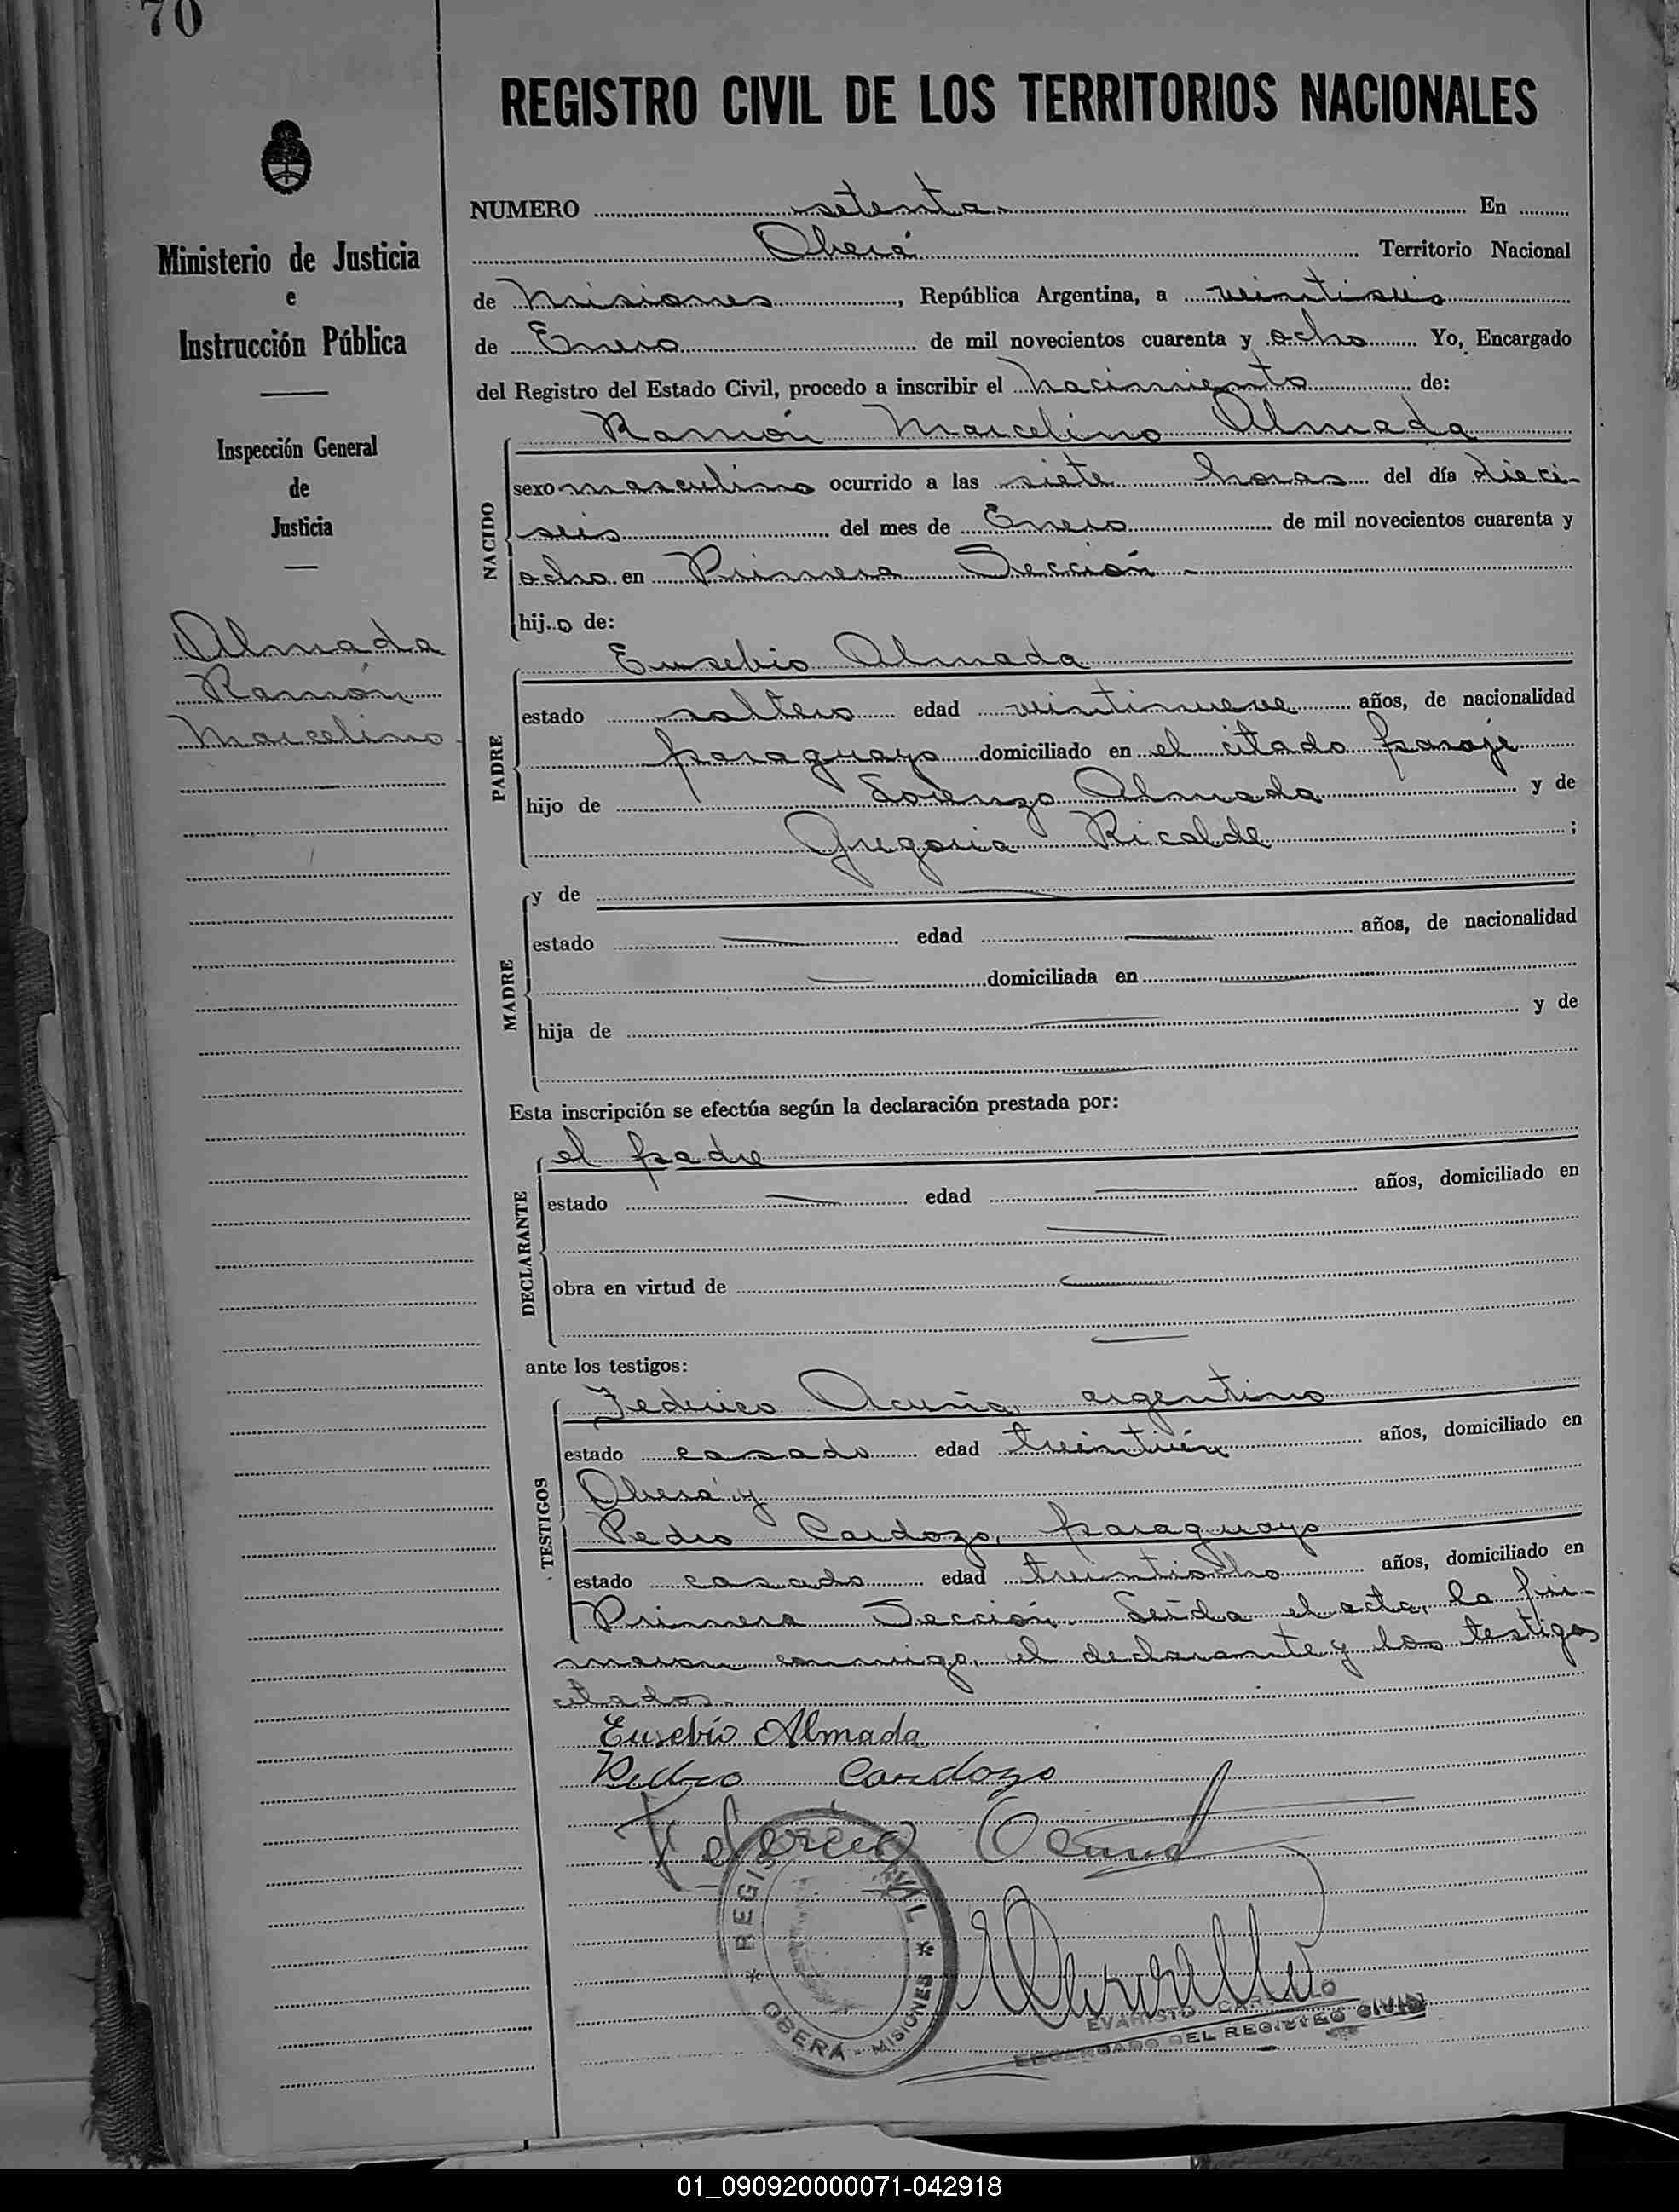 70
REGISTRO CIVIL DE LOS TERRITORIOS NACIONALES
Ministerio de Justicia
e
Instrucción Pública
Inspección General
de
Justicia
Almada
Ramón
Marcelino
NUMERO setenta En
Oberá Territorio Nacional
de Misiones, República Argentina, a veintiseis
de Enero de mil novecientos cuarenta y ocho Yo, Encargado
del Registro del Estado Civil, procedo a inscribir el nacimiento de:
Ramón Marcelino Almada
NACIDO
sexo masculino ocurrido a las siete horas del día dieci-
seis del mes de Enero de mil novecientos cuarenta y
ocho en Primera Sección -
hijo de:
Eusebio Almada
PADRE
estado soltero edad veintinueve años, de nacionalidad
paraguayo domiciliado en el citado paraje
hijo de Lorenzo Almada y de
Gregoria Ricalde ;
MADRE
y de
estado edad años, de nacionalidad
domiciliada en
hija de y de
Esta inscripción se efectúa según la declaración prestada por:
el padre
DECLARANTE
estado edad años, domiciliado en
obra en virtud de
ante los testigos:
Federico Acuña, argentino
TESTIGOS
estado casado edad treintiún años, domiciliado en
Oberá y
Pedro Cardozo, paraguayo
estado casado edad treintiocho años, domiciliado en
Primera Sección. Leída el acta, la fir-
maron conmigo, el declarante y los testigos
citados.
Eusebio Almada
Pedro Cardozo
Federico Acuña
REGISTRO CIVIL * OBERÁ - MISIONES *
EVARISTO CARRILLO
ENCARGADO DEL REGISTRO CIVIL
01_090920000071-042918